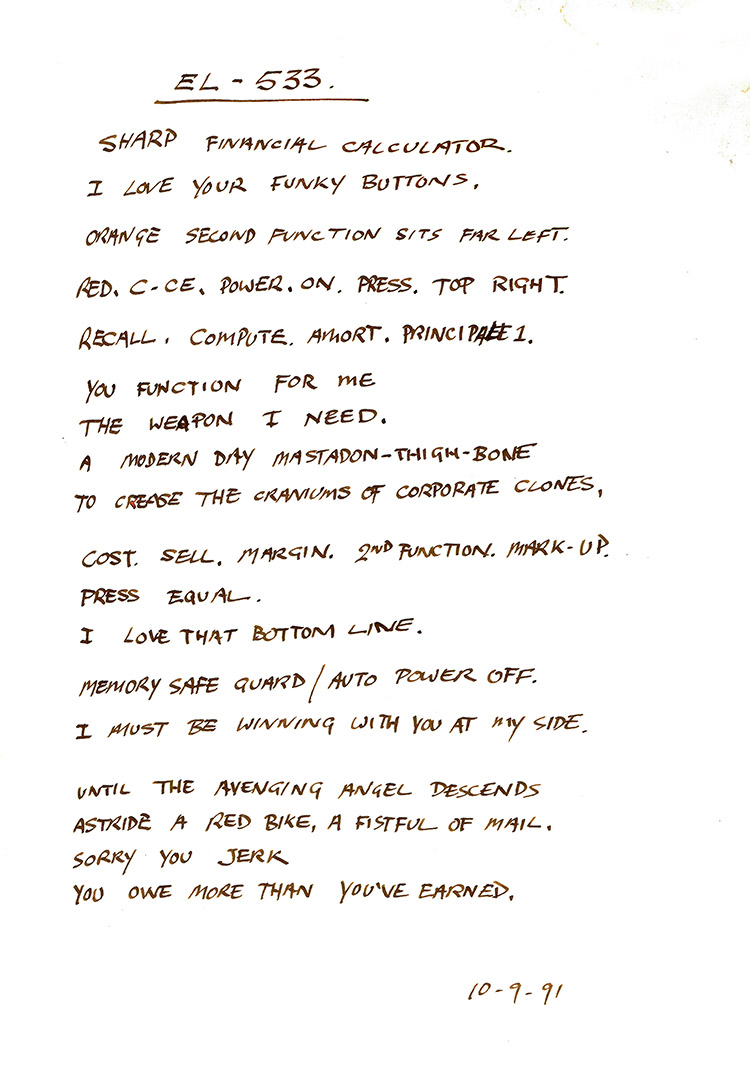 EL - 533.
SHARP FINANCIAL CALCULATOR.
I LOVE YOUR FUNKY BUTTONS.
ORANGE SECOND FUNCTION SITS FAR LEFT.
RED. C-CE. POWER. ON. PRESS. TOP RIGHT.
RECALL. COMPUTE. AMORT. PRINCIPALE 1.
YOU FUNCTION FOR ME
THE WEAPON I NEED.
A MODERN DAY MASTADON-THIGH-BONE
TO CREASE THE CRANIUMS OF CORPORATE CLONES,
COST. SELL. MARGIN. 2ND FUNCTION. MARK-UP.
PRESS EQUAL.
I LOVE THAT BOTTOM LINE.
MEMORY SAFE GUARD / AUTO POWER OFF.
I MUST BE WINNING WITH YOU AT MY SIDE.
UNTIL THE AVENGING ANGEL DESCENDS
ASTRIDE A RED BIKE, A FISTFUL OF MAIL.
SORRY YOU JERK
YOU OWE MORE THAN YOU'VE EARNED.
10-9-91